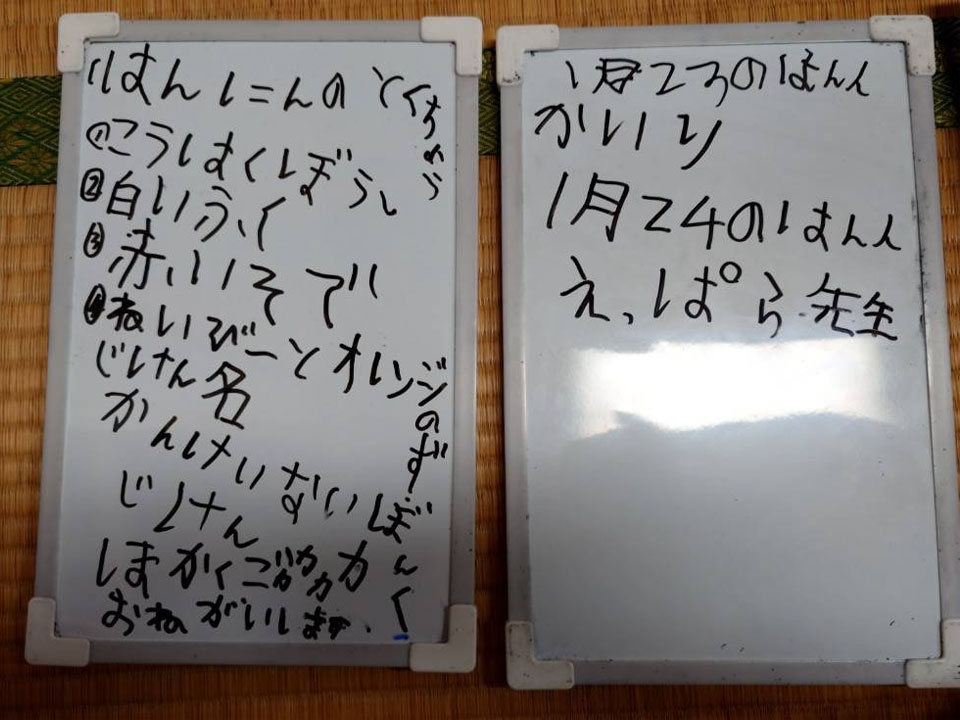 はんにんのとくちょう
①こうはくぼうし
②白いふく
③赤いそで
④ねいびーとオレンジのずぼんく
じけん名
かんけいない
じけん
おねがいします.
1月23のはんん
かいり
1月24のはんん
えっぱら先生